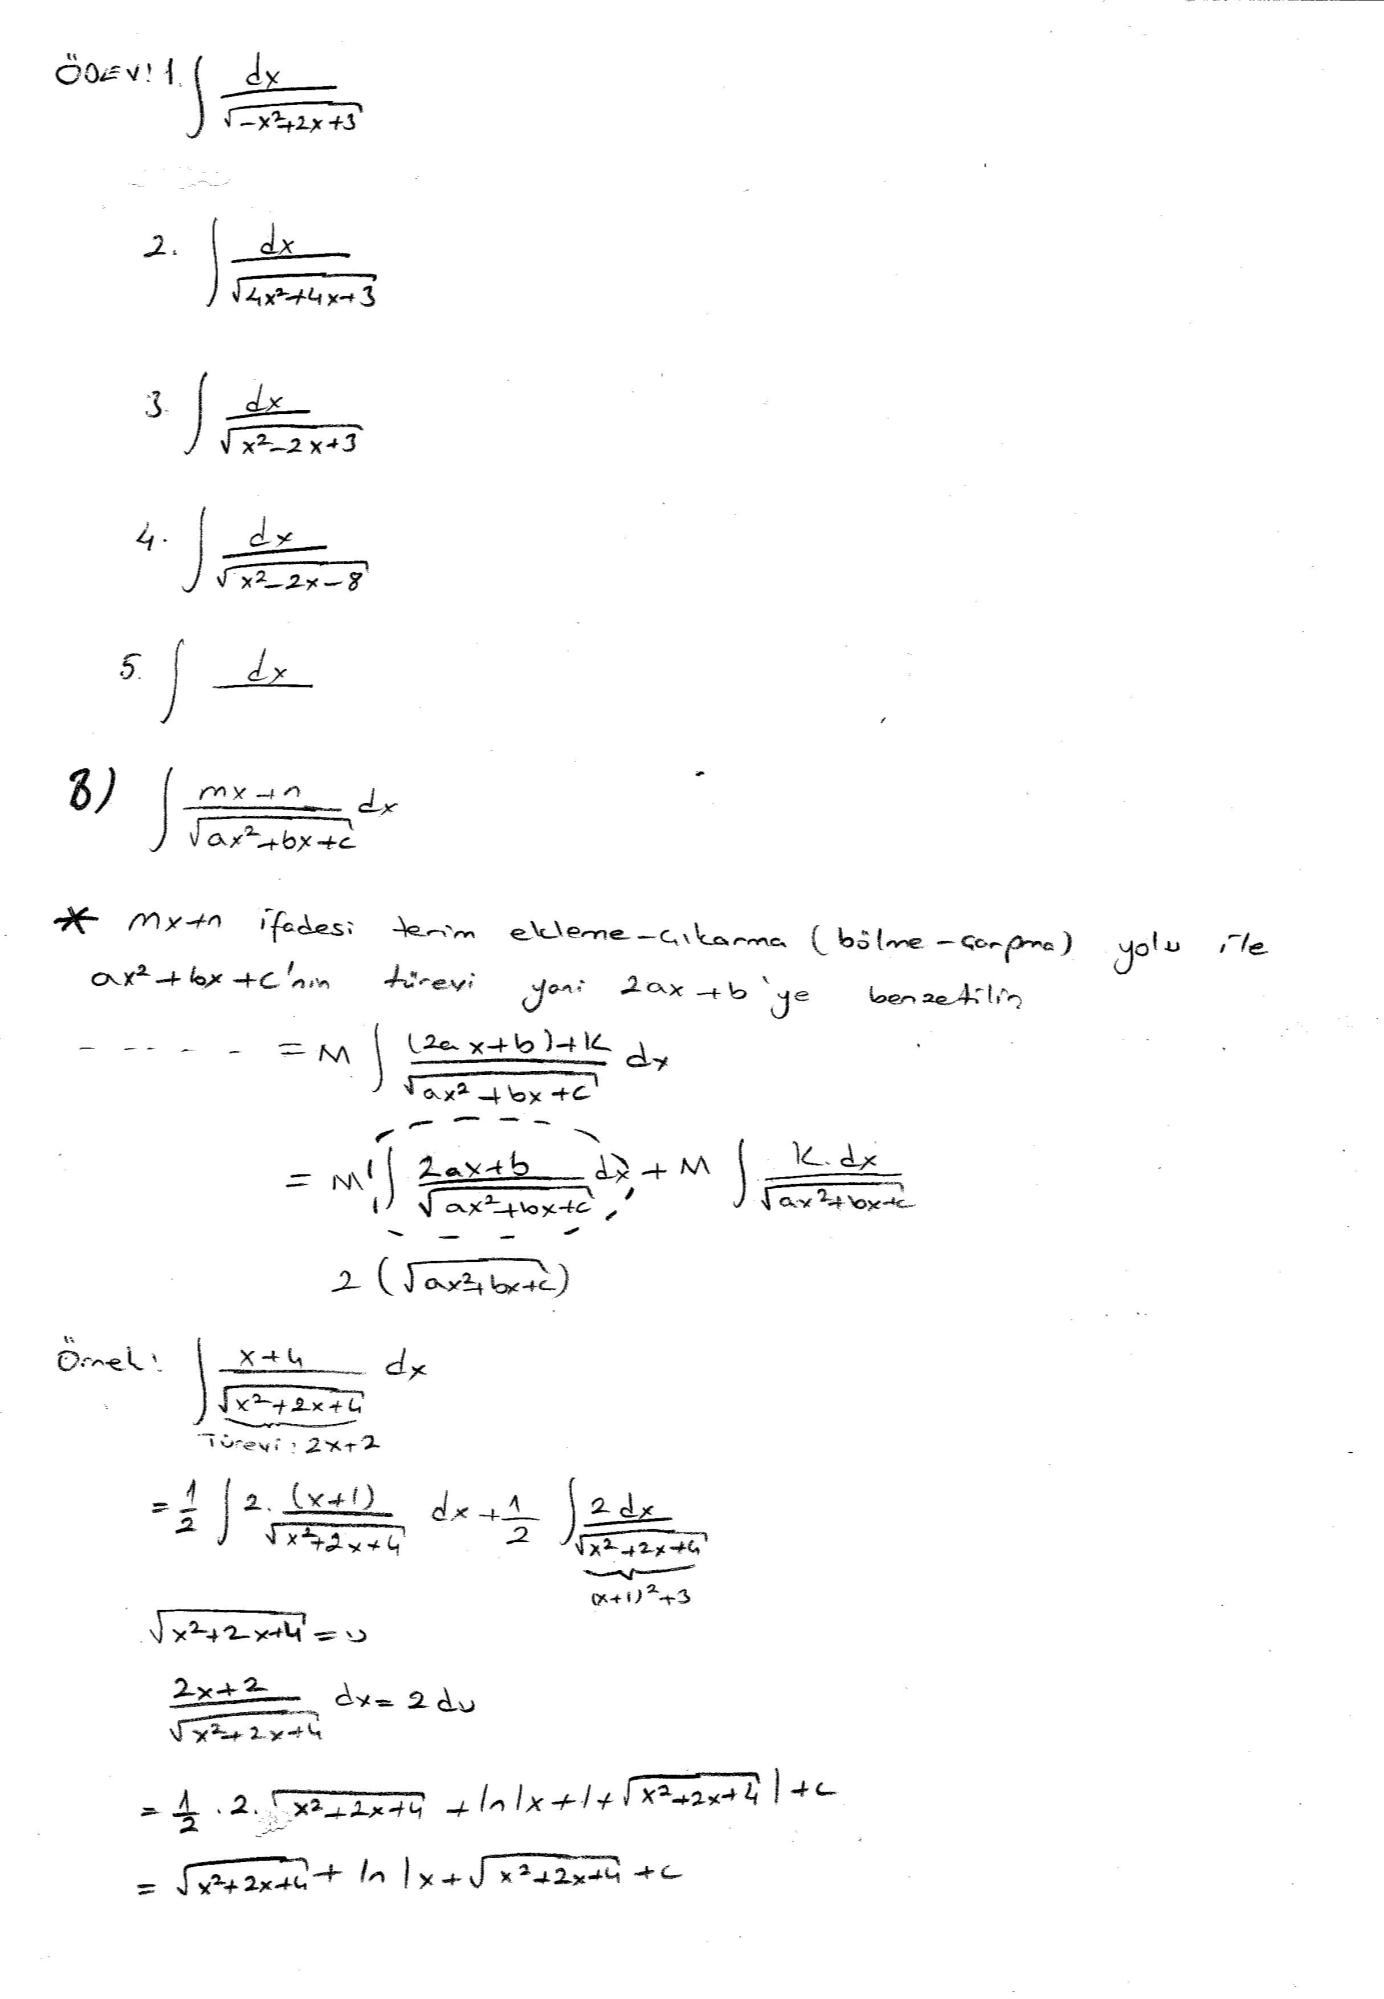 ÖDEV: 1. ∫ dx / √(-x²+2x+3)
2. ∫ dx / √(4x²+4x+3)
3. ∫ dx / √(x²-2x+3)
4. ∫ dx / √(x²-2x-8)
5. ∫ dx
8) ∫ (mx+n) / √(ax²+bx+c) dx
* mx+n ifadesi terim ekleme-çıkarma (bölme-çarpma) yolu ile
ax²+bx+c'nin türevi yani 2ax+b'ye benzetilir
- - - - - - = M ∫ ((2ax+b)+K) / √(ax²+bx+c) dx
= M ∫ (2ax+b) / √(ax²+bx+c) dx + M ∫ K.dx / √(ax²+bx+c)
2 (√(ax²+bx+c))
Örnek: ∫ (x+4) / √(x²+2x+4) dx
Türevi: 2x+2
= 1/2 ∫ 2. (x+1) / √(x²+2x+4) dx + 1/2 ∫ 2 dx / √(x²+2x+4)
(x+1)²+3
√(x²+2x+4) = u
(2x+2) / √(x²+2x+4) dx = 2 du
= 1/2 . 2. √(x²+2x+4) + ln |x+1+√(x²+2x+4)| + c
= √(x²+2x+4) + ln |x+√(x²+2x+4) + c